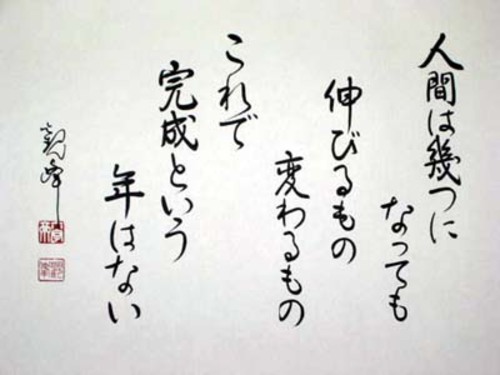 人間は幾つに
なっても
伸びるもの
変わるもの
これで
完成という
年はない
観峰